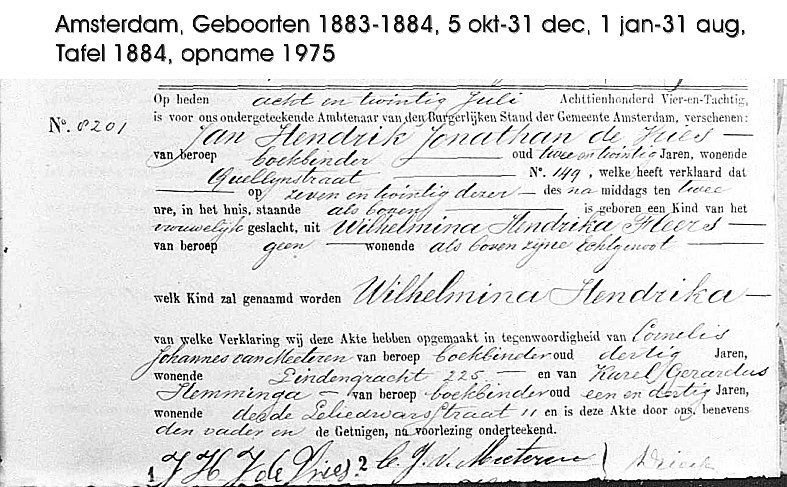 Amsterdam, Geboorten 1883-1884, 5 okt-31 dec, 1 jan-31 aug,
Tafel 1884, opname 1975
Op heden acht en twintig Juli Achttienhonderd Vier-en-Tachtig,
No. 8201 is voor ons ondergeteekende Ambtenaar van den Burgerlijken Stand der Gemeente Amsterdam, verschenen:
Jan Hendrik Jonathan de Vries
van beroep boekbinder oud twee en twintig Jaren, wonende
Quellijnstraat No. 149, welke heeft verklaard dat
op zeven en twintig dezer des na middags ten twee
ure, in het huis, staande als boven is geboren een Kind van het
vrouwelijk geslacht, uit Wilhelmina Hendrika Heers
van beroep geen wonende als boven zijne Echtgenoot
welk Kind zal genaamd worden Wilhelmina Hendrika
van welke Verklaring wij deze Akte hebben opgemaakt in tegenwoordigheid van Cornelis
Johannes van Meeteren van beroep boekbinder oud dertig Jaren,
wonende Lindengracht 225 en van Karel Gerardus
Hemminga van beroep boekbinder oud een en dertig Jaren,
wonende derde Leliedwarsstraat 11 en is deze Akte door ons, benevens
den vader en de Getuigen, na voorlezing onderteekend.
1 J H J de Vries 2 C. J. v. Meeteren